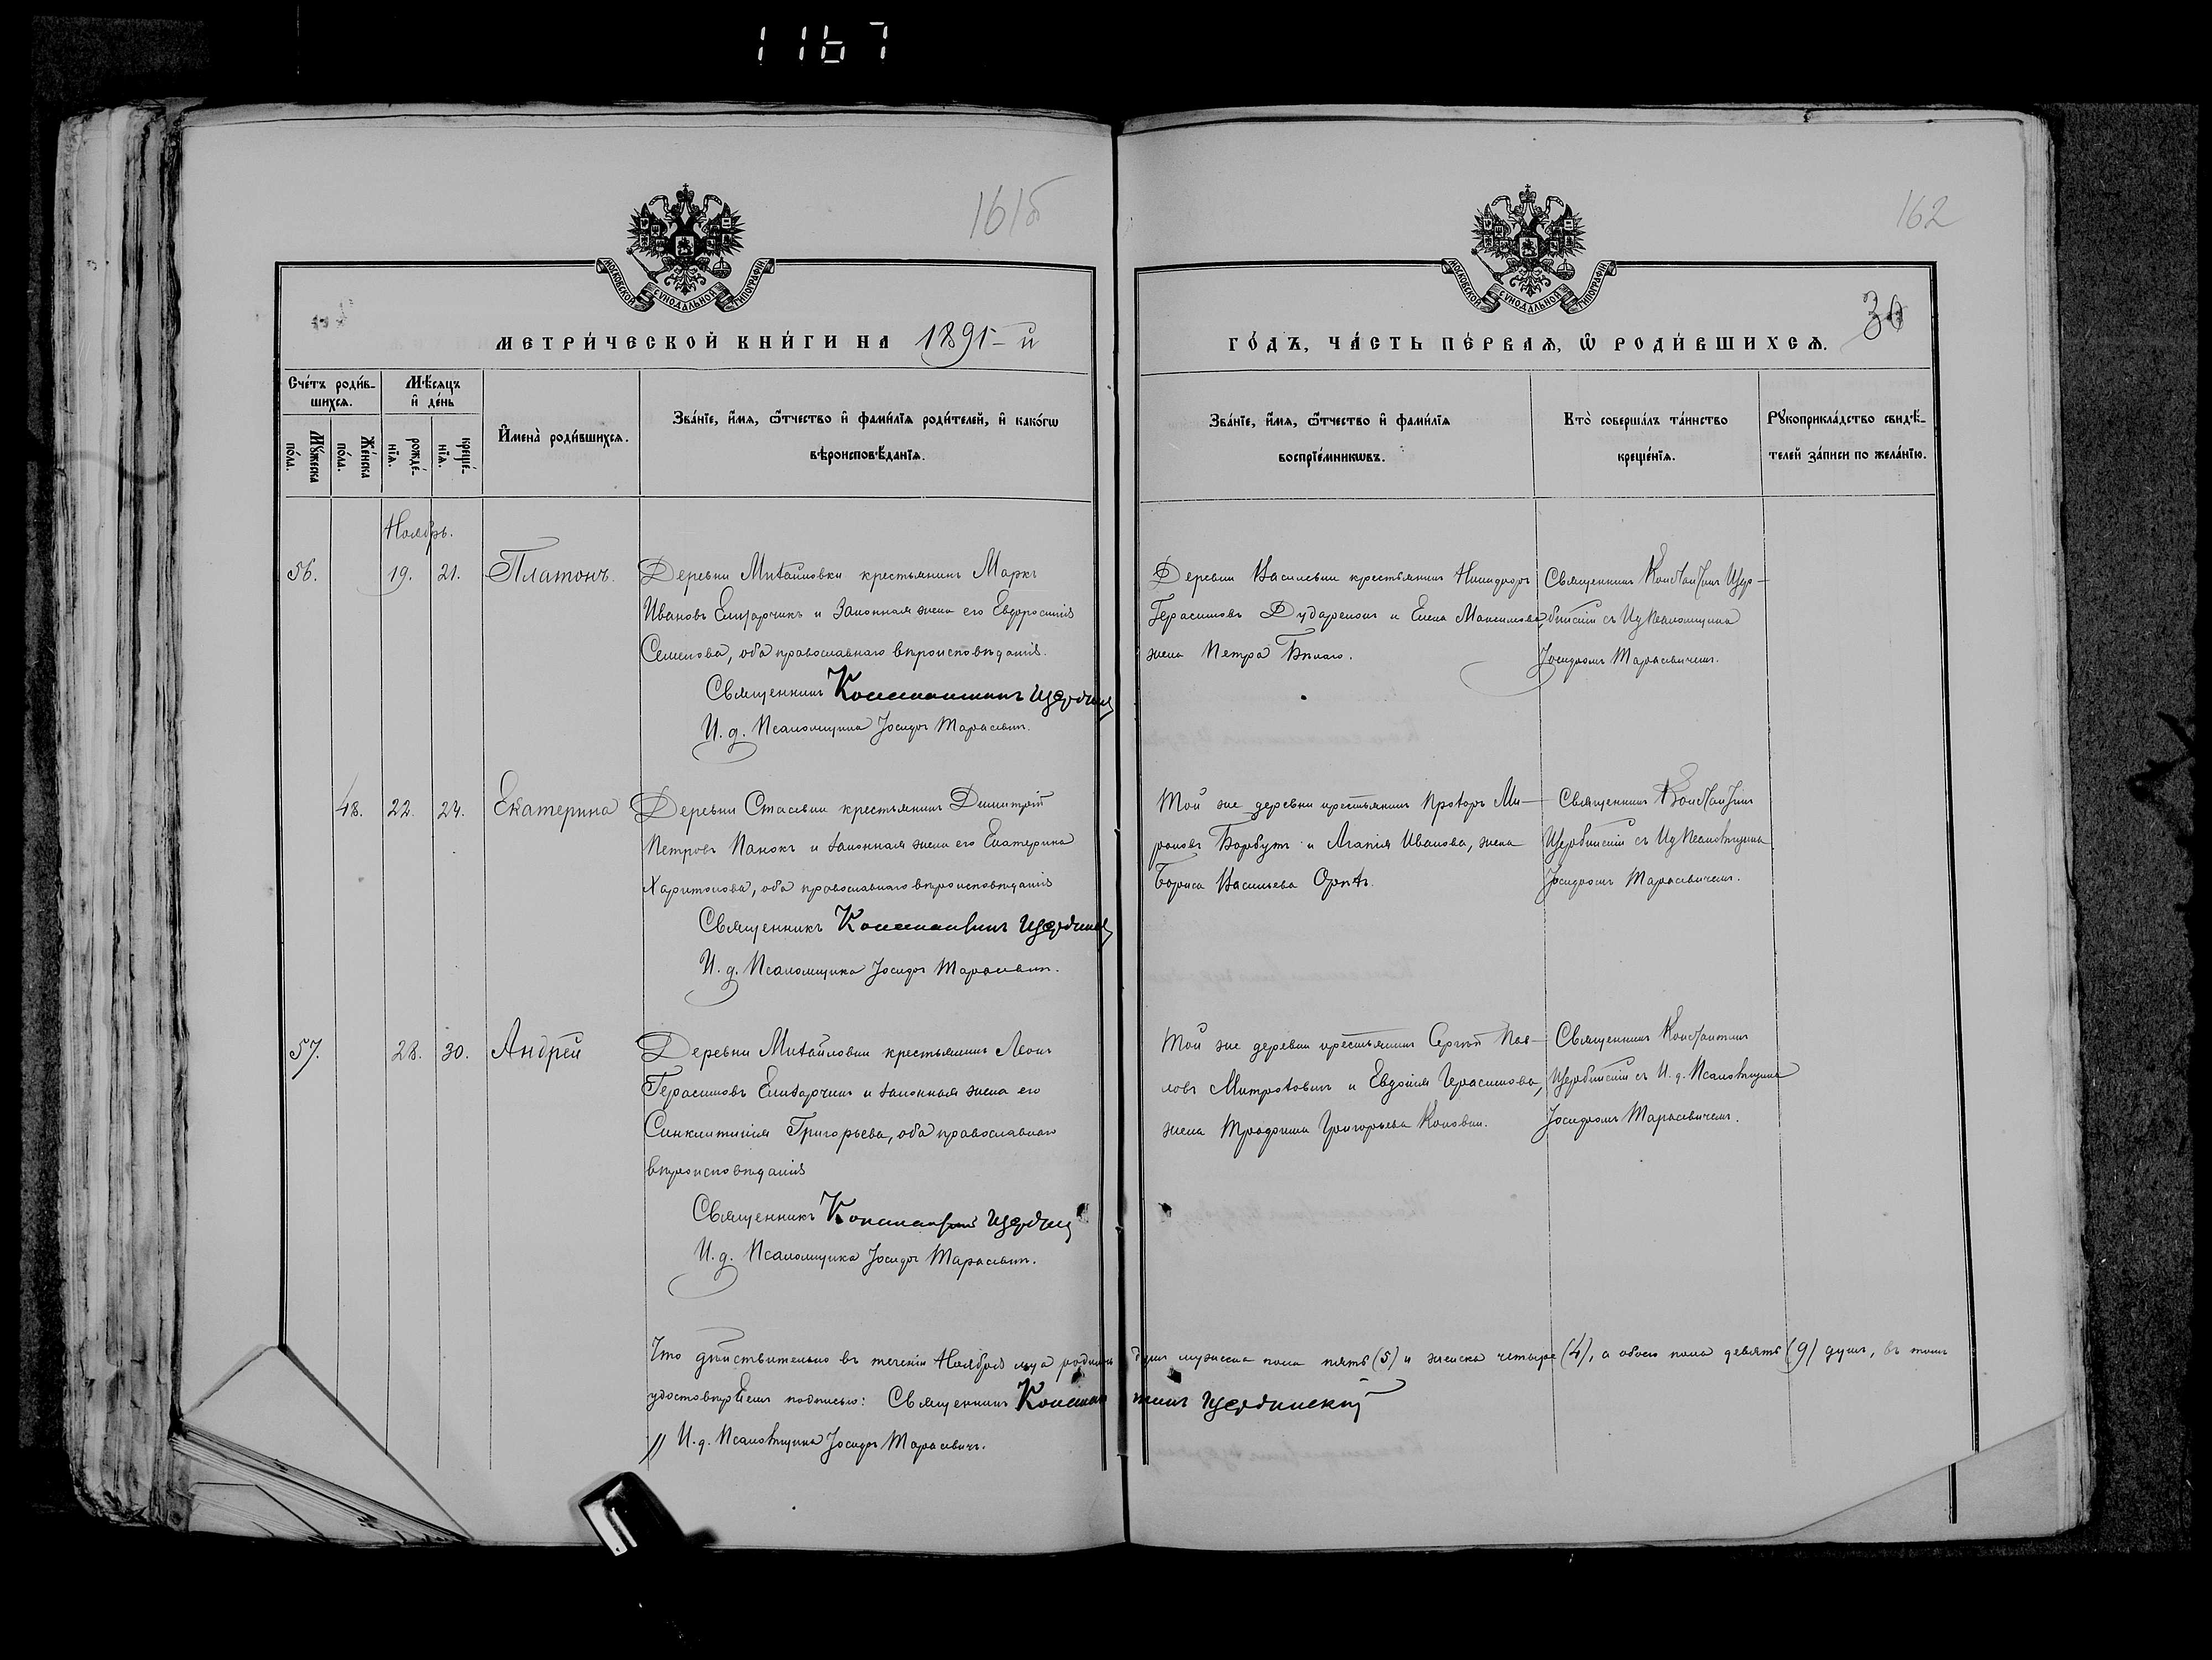 1167
161б
162
МОСКОВСКОЙ СѴНОДАЛЬНОЙ ТИПОГРАФІИ
МОСКОВСКОЙ СѴНОДАЛЬНОЙ ТИПОГРАФІИ
30
МЕТРИ́ЧЕСКОЙ КНИ́ГИ НА 1891-й
ГО́ДЪ, ЧА́СТЬ ПЕ́РВАѦ, Ѡ РОДИ́ВШИХСѦ.
Сче́тъ роди́в-
шихсѧ.
Мѣ́сяцъ
и҆ де́нь
Мꙋ́жеска
по́ла.
Же́нска
по́ла.
рожде́-
нїѧ.
креще́-
нїѧ.
И҆мена̀ роди́вшихсѧ.
Зва́нїе, и҆́мѧ, ѻ҆́тчество и҆ фами́лїѧ роди́телей, и҆ како́гѡ
вѣроисповѣ́данїѧ.
Зва́нїе, и҆́мѧ, ѻ҆́тчество и҆ фами́лїѧ
воспрїе́мникѡвъ.
Кто̀ соверша́лъ та́инство
креще́нїѧ.
Рꙋкоприкла́дство свидѣ́-
телей за́писи по жела́нїю.
Ноябрь.
56. 19. 21. Платонъ.
Деревни Михайловки крестьянинъ Маркъ
Ивановъ Елизарчикъ и законная жена его Евфросинія
Семенова, оба православнаго вѣроисповѣданія.
Священникъ Константинъ Щербинскій
И. д. Псаломщика Іосифъ Тарасевичъ.
Деревни Василевки крестьянинъ Никифоръ
Герасимовъ Дударенокъ и Елена Максимова,
жена Петра Бѣлаго.
Священникъ Константинъ Щер-
бинскій съ И д Псаломщика
Іосифомъ Тарасевичемъ.
48. 22. 24. Екатерина
Деревни Стасевки крестьянинъ Димитрій
Петровъ Панокъ и законная жена его Екатерина
Харитонова, оба православнаго вѣроисповѣданія
Священникъ Константинъ Щербинскій
И. д. Псаломщика Іосифъ Тарасевичъ.
Той же деревни крестьянинъ Прохоръ Ми-
роновъ Борбутъ и Агапія Иванова, жена
Бориса Васильева
Священникъ Константинъ
Щербинскій съ И д Псаломщика
Іосифомъ Тарасевичемъ.
57. 28. 30. Андрей
Деревни Михайловки крестьянинъ Леонъ
Герасимовъ Елизарчикъ и законная жена его
Синклитикія Григорьева, оба православнаго
вѣроисповѣданія
Священникъ Константинъ Щербинскій
И. д. Псаломщика Іосифъ Тарасевичъ.
Той же деревни крестьянинъ Сергѣй Пав-
ловъ Митроховичъ и Евдокія Герасимова,
жена Трофима Григорьева
Священникъ Константинъ
Щербинскій съ И. д. Псаломщика
Іосифомъ Тарасевичемъ.
Что дѣйствительно въ теченіи Ноября м-ца родилось душъ мужеска пола пять (5) и женска четыре (4), а обоего пола девять (9) душъ, въ томъ
удостовѣряемъ подписью: Священникъ Константинъ Щербинскій
И. д. Псаломщика Іосифъ Тарасевичъ.